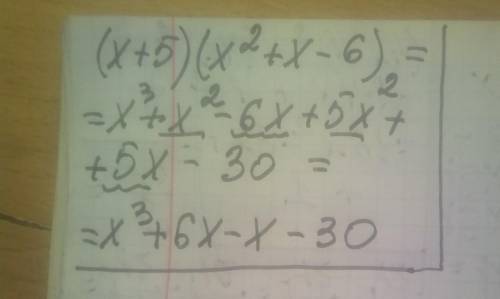 (x+5)(x²+x-6)=
=x³+x²-6x+5x²+
+5x-30=
=x³+6x-x-30